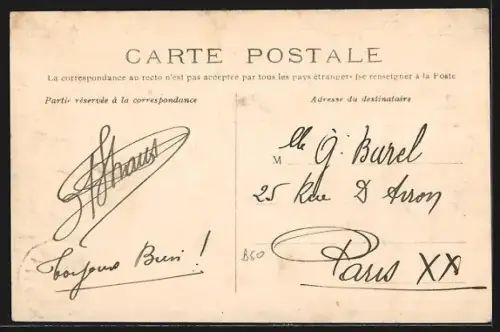 CARTE POSTALE
La correspondance au recto n'est pas acceptée par tous les pays étrangers (Se renseigner à la Poste
Partie réservée à la correspondance
Adresse du destinataire
Toujours Bien !
M lle G. Burel
25 Rue D Avron
B60
Paris XX